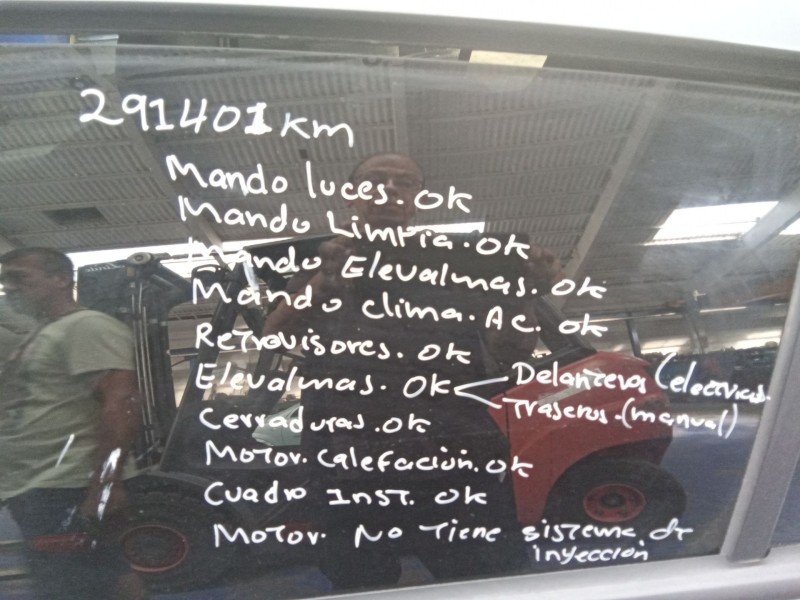 291401 Km
Mando luces. Ok
Mando Limpia. Ok
Mando Elevalunas. Ok
Mando clima. A C. Ok
Retrovisores. Ok
Elevalunas. Ok
Delanteros (electricos.
Traseros. (manual)
Cerraduras. Ok
Motor. Calefacion. Ok
Cuadro Inst. Ok
Motor. No Tiene sistema de
inyeccion